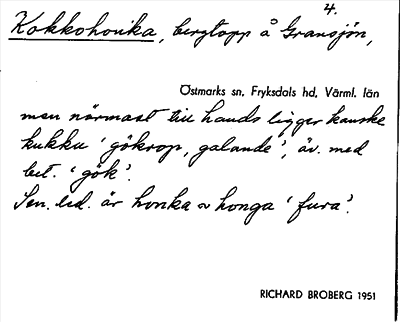 4.
Kokkohonka, bergtopp å Gransjön,
Östmarks sn, Fryksdals hd, Värml. län
men närmast till hands ligger kanske
kukku 'gökrop, galande', äv. med
bet. 'gök'.
Sen. led. är honka ~ honga 'fura'.
RICHARD BROBERG 1951